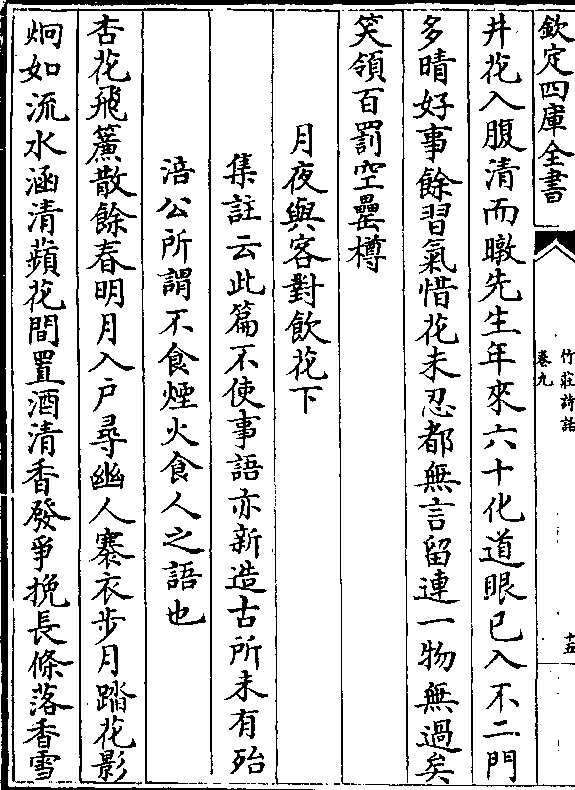 欽定四庫全書
竹莊詩話
卷九
十五
井花入腹清而暾先生年來六十化道眼已入不二門
多晴好事餘習氣惜花未忍都無言留連一物無過矣
笑領百罰空罍樽
月夜與客對飲花下
集註云此篇不使事語亦新造古所未有殆
涪公所謂不食煙火食人之語也
杏花飛簾散餘春明月入戶尋幽人褰衣步月踏花影
炯如流水涵清蘋花間置酒清香發爭挽長條落香雪